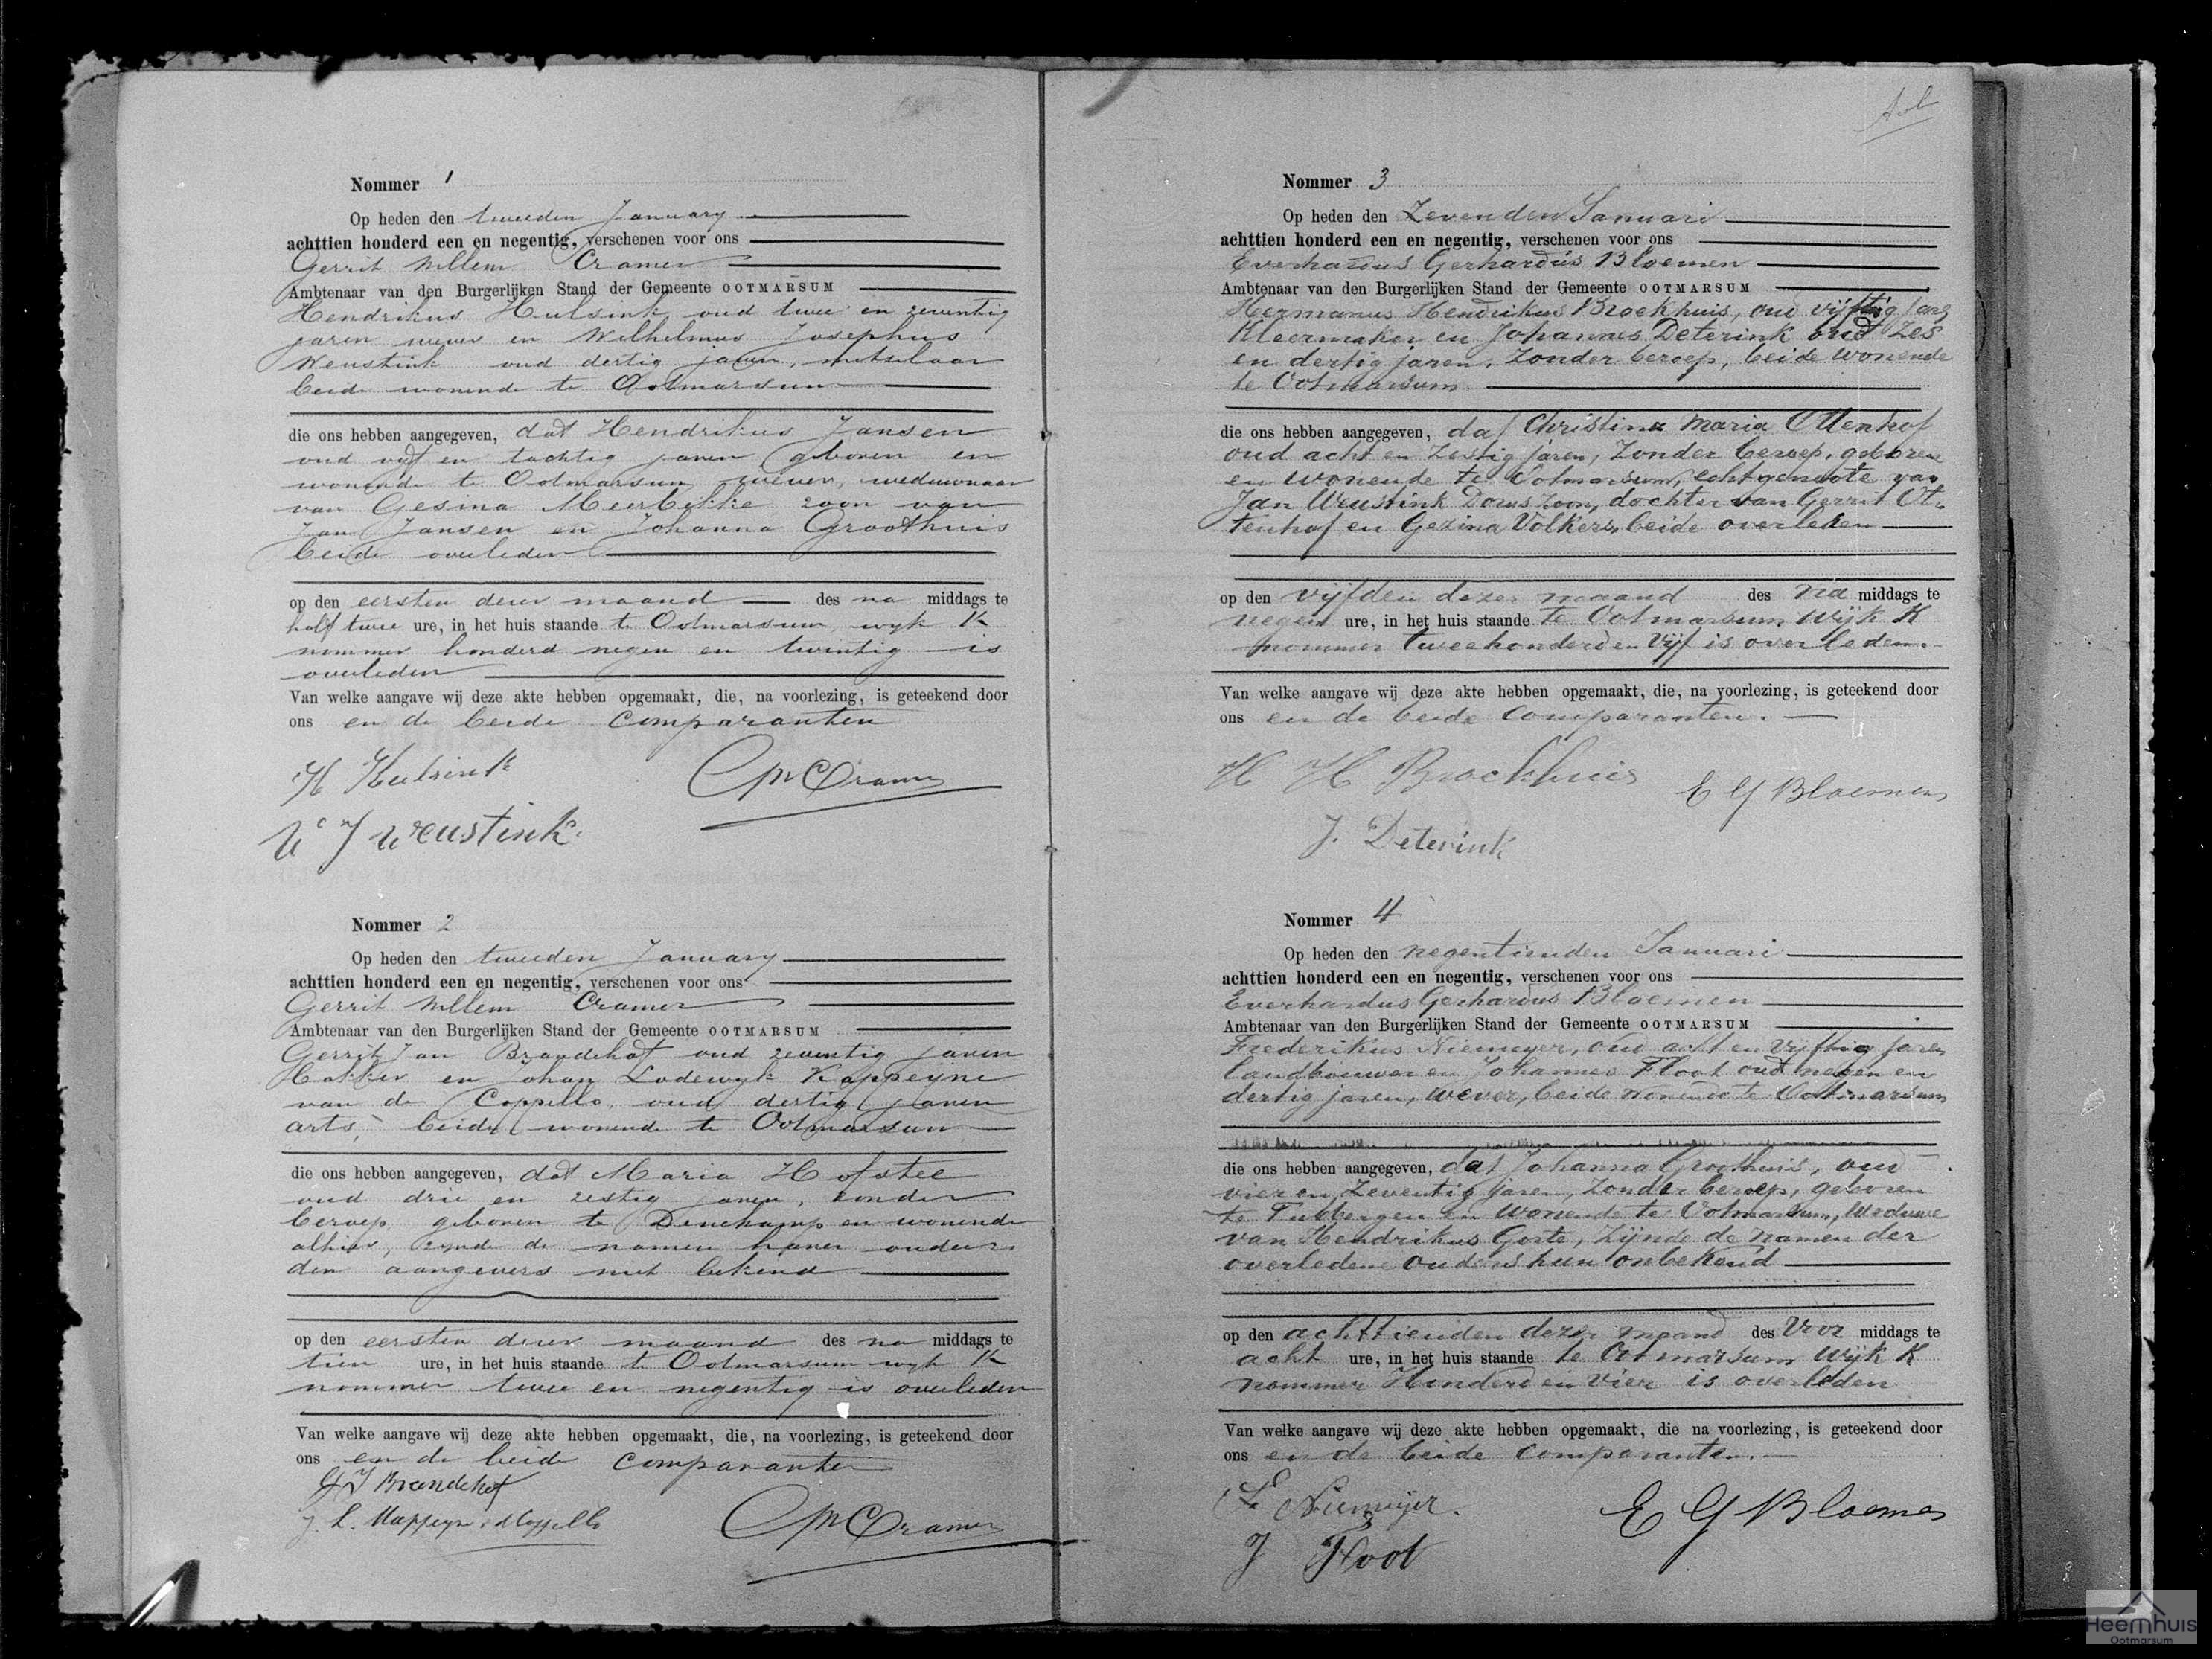 Nommer 1
Op heden den tweeden January
achttien honderd een en negentig, verschenen voor ons
Gerrit Willem Cramer
Ambtenaar van den Burgerlijken Stand der Gemeente OOTMARSUM
Hendrikus Hulsink oud twee en zeventig
jaren wever en Wilhelmus Josephus
Weustink oud dertig jaren, metselaar
beide wonende te Ootmarsum
die ons hebben aangegeven, dat Hendrikus Jansen
oud vijf en tachtig jaren geboren en
wonende te Ootmarsum, wever, weduwnaar
van Gesina Meerbekke zoon van
Jan Jansen en Johanna Groothuis
beide overleden
op den eersten dezer maand des na middags te
half twee ure, in het huis staande te Ootmarsum, wyk K
nommer honderd negen en twintig is
overleden
Van welke aangave wij deze akte hebben opgemaakt, die, na voorlezing, is geteekend door
ons en de beide comparanten
H Hulsink
GW Cramer
W J Weustink
Nommer 2
Op heden den tweeden January
achttien honderd een en negentig, verschenen voor ons
Gerrit Willem Cramer
Ambtenaar van den Burgerlijken Stand der Gemeente OOTMARSUM
Gerrit Jan Brandehof oud zeventig jaren
Bakker en Johan Lodewyk Kappeyne
van de Coppello, oud dertig jaren
arts, beide wonende te Ootmarsum
die ons hebben aangegeven, dat Maria Hofstee
oud drie en zestig jaren, zonder
beroep, geboren te Denekamp en wonende
alhier, zynde de namen harer ouders
den aangevers niet bekend
op den eersten dezer maand des na middags te
tien ure, in het huis staande te Ootmarsum wyk K
nommer twee en negentig is overleden
Van welke aangave wij deze akte hebben opgemaakt, die, na voorlezing, is geteekend door
ons en de beide comparanten
GJ Brandehof
J. L. Kappeyne vd Coppello
GW Cramer
Nommer 3
Op heden den Zevenden Januari
achttien honderd een en negentig, verschenen voor ons
Everhardus Gerhardus Bloemen
Ambtenaar van den Burgerlijken Stand der Gemeente OOTMARSUM
Hermanus Hendrikus Brockhuis, oud vijftig jaren
Kleermaker en Johannes Deterink oud Zes
en dertig jaren, Zonder beroep, beide wonende
te Ootmarsum
die ons hebben aangegeven, dat Christina Maria Ottenhof
oud acht en Zestig jaren, Zonder beroep, geboren
en wonende te Ootmarsum, echtgenoote van
Jan Weustink Douszoon, dochter van Gerrit Ot-
tenhof en Gezina Volkers, beide overleden
op den vijfden dezer maand des na middags te
negen ure, in het huis staande te Ootmarsum Wijk K
nommer tweehonderd en Vijf is overleden.
Van welke aangave wij deze akte hebben opgemaakt, die, na voorlezing, is geteekend door
ons en de beide comparanten.
H H Brockhuis
E G Bloemen
J. Deterink
Nommer 4
Op heden den negentienden Januari
achttien honderd een en negentig, verschenen voor ons
Everhardus Gerhardus Bloemen
Ambtenaar van den Burgerlijken Stand der Gemeente OOTMARSUM
Frederikus Niemeyer, oud acht en Vijftig jaren
landbouwer en Johannes Floot oud negen en
dertig jaren, wever, beide wonende te Ootmarsum
die ons hebben aangegeven, dat Johanna Groothuis, oud
vier en Zeventig jaren, Zonder beroep, geboren
te Tubbergen en Wonende te Ootmarsum, Weduwe
van Hendrikus Geste, Zijnde de namen der
overledene ouders hun onbekend
op den achttienden dezer maand des Voor middags te
acht ure, in het huis staande te Ootmarsum Wijk K
nommer Honderd en Vier is overleden
Van welke aangave wij deze akte hebben opgemaakt, die na voorlezing, is geteekend door
ons en de beide comparanten.
Niemeijer.
E G Bloemen
J Floot
Heemhuis
Ootmarsum